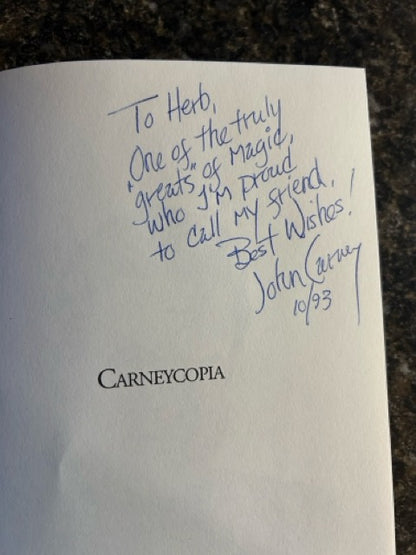 To Herb,
One of the truly
"greats" of Magic,
who I'm proud
to call my friend.
Best Wishes!
John Carney
10/93
CARNEYCOPIA